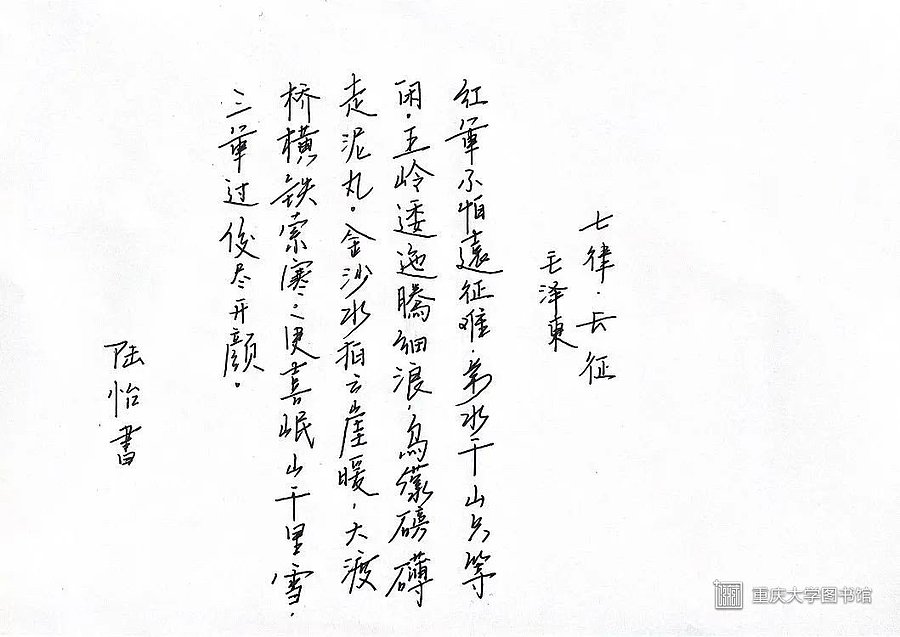 七律·长征
毛泽東
红軍不怕遠征难，萬水千山只等
闲。五岭逶迤騰細浪，烏蒙磅礴
走泥丸。金沙水拍云崖暖，大渡
桥横铁索寒。更喜岷山千里雪，
三軍过後尽开颜。
陆怡書
重庆大学图书馆